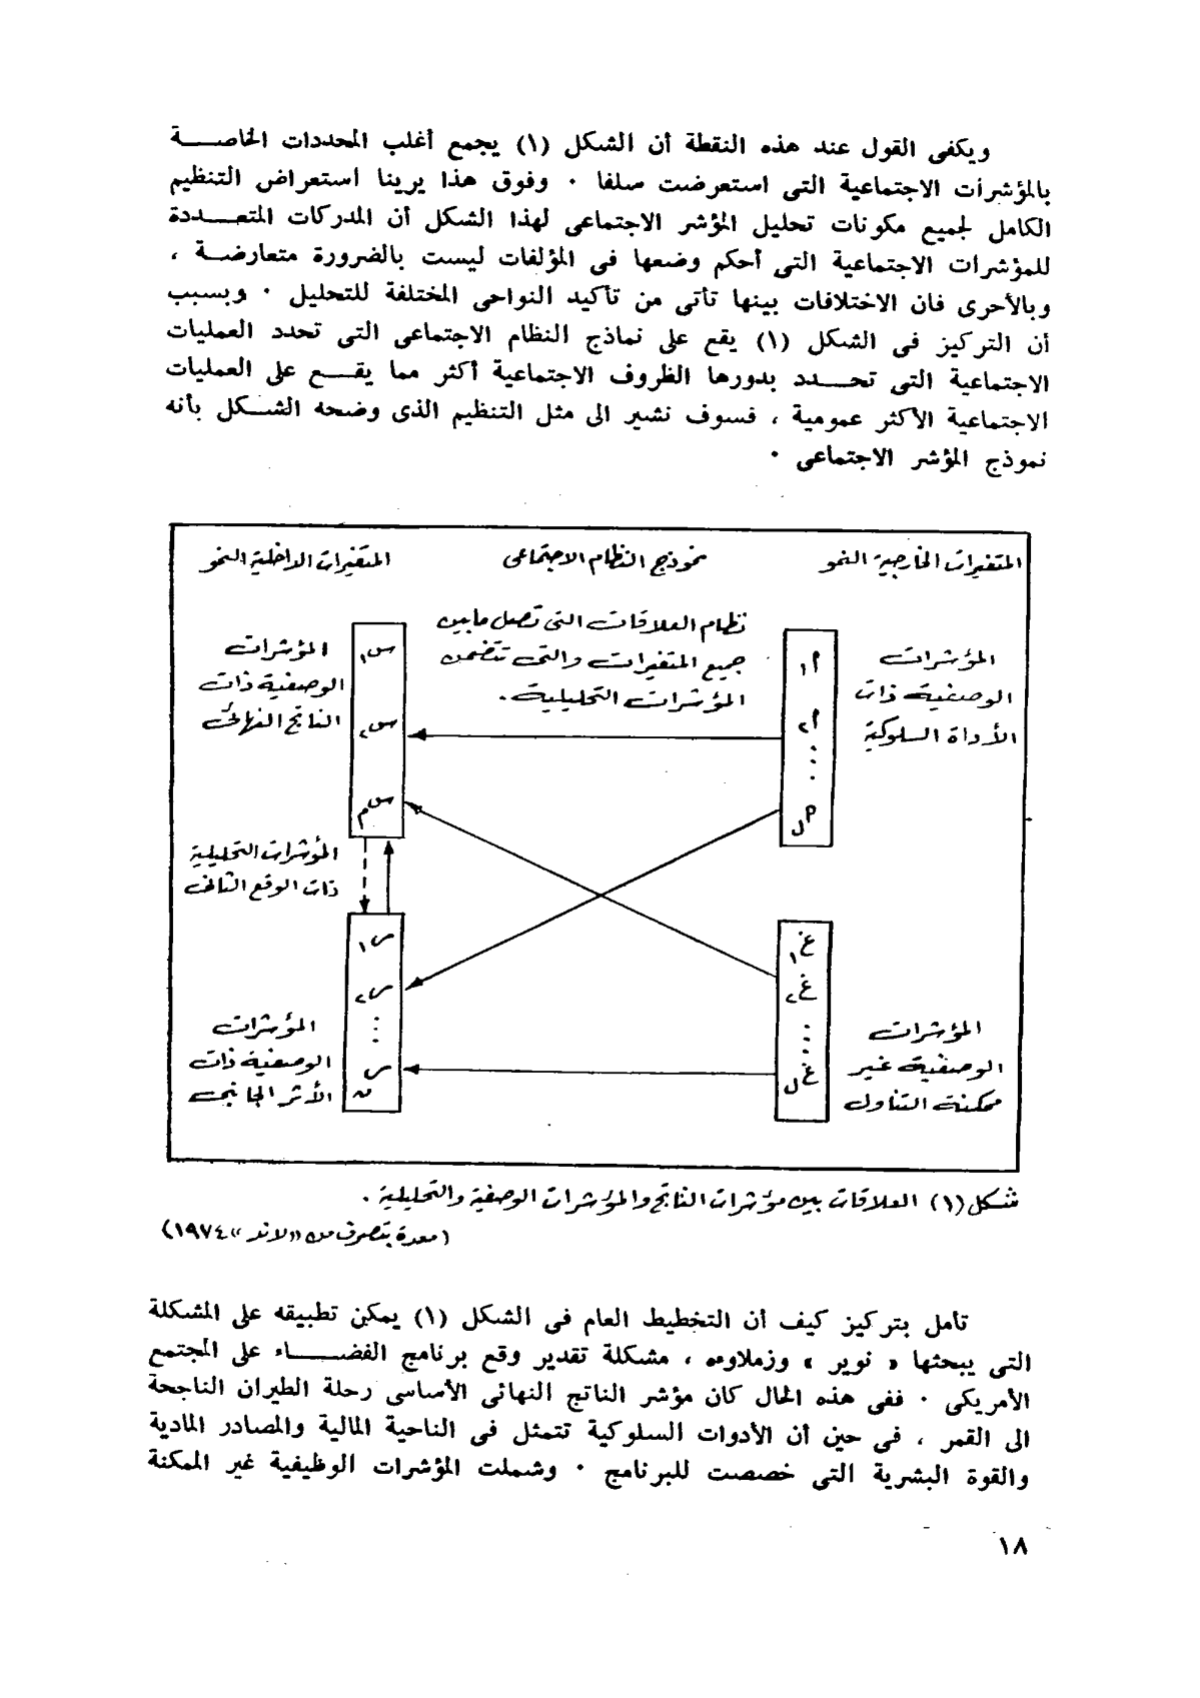 ويكفى القول عند هذه النقطة أن الشكل (١) يجمع أغلب المحددات الخاصة
بالمؤشرات الاجتماعية التى استعرضت سلفا ٠ وفوق هذا يرينا استعراض التنظيم
الكامل لجميع مكونات تحليل المؤشر الاجتماعى لهذا الشكل أن المدركات المتعددة
للمؤشرات الاجتماعية التى أحكم وضعها فى المؤلفات ليست بالضرورة متعارضة ،
وبالأحرى فان الاختلافات بينها تأتى من تأكيد النواحى المختلفة للتحليل ٠ وبسبب
أن التركيز فى الشكل (١) يقع على نماذج النظام الاجتماعى التى تحدد العمليات
الاجتماعية التى تحدد بدورها الظروف الاجتماعية أكثر مما يقع على العمليات
الاجتماعية الأكثر عمومية ، فسوف نشير الى مثل التنظيم الذى وضحه الشكل بأنه
نموذج المؤشر الاجتماعى ٠
المتغيرات الخارجية النمو
نموذج النظام الاجتماعى
المتغيرات الداخلية النمو
المؤشرات
الوصفية ذات
الأداة السلوكية
م١
م٢
نظام العلاقات التى تصل مابين
جميع المتغيرات والتى تتضمن
المؤشرات التحليلية.
س١
س٢
س م
المؤشرات
الوصفية ذات
الناتج النهائى
المؤشرات التحليلية
ذات الوقع الثانى
غ١
غ٢
غ ل
المؤشرات
الوصفية غير
ممكنة التناول
ص١
ص٢
ص ن
المؤشرات
الوصفية ذات
الأثر الجانبى
شكل (١) العلاقات بين مؤشرات الناتج والمؤشرات الوصفية والتحليلية .
(معدة بتصرف من «لاند» ١٩٧٤)
تأمل بتركيز كيف أن التخطيط العام فى الشكل (١) يمكن تطبيقه على المشكلة
التى يبحثها « نوير » وزملاؤه ، مشكلة تقدير وقع برنامج الفضاء على المجتمع
الأمريكى ٠ ففى هذه الحال كان مؤشر الناتج النهائى الأساسى رحلة الطيران الناجحة
الى القمر ، فى حين أن الأدوات السلوكية تتمثل فى الناحية المالية والمصادر المادية
والقوة البشرية التى خصصت للبرنامج ٠ وشملت المؤشرات الوظيفية غير الممكنة
١٨